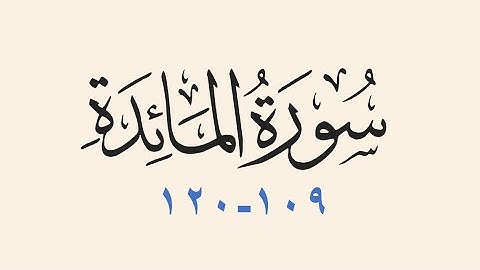 سُورَةُ المَائِدَةِ
١٠٩-١٢٠